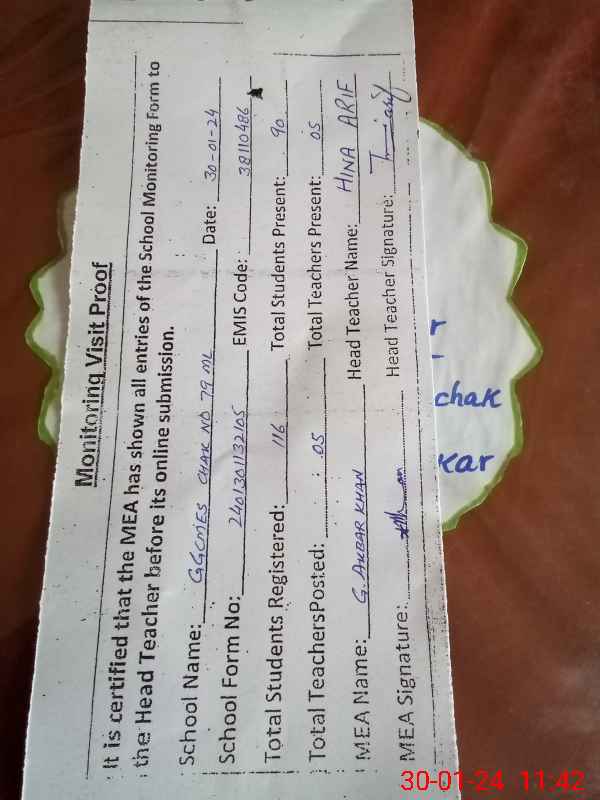 Monitoring Visit Proof
It is certified that the MEA has shown all entries of the School Monitoring Form to
the Head Teacher before its online submission.
School Name: GGCMES CHAK NO 79 ML Date: 30-01-24
School Form No: 2401301132105 EMIS Code: 38110486
Total Students Registered: 116 Total Students Present: 90
Total TeachersPosted: 05 Total Teachers Present: 05
MEA Name: G. AKBAR KHAN Head Teacher Name: HINA ARIF
MEA Signature: Head Teacher Signature:
chak
kar
30-01-24 11:42